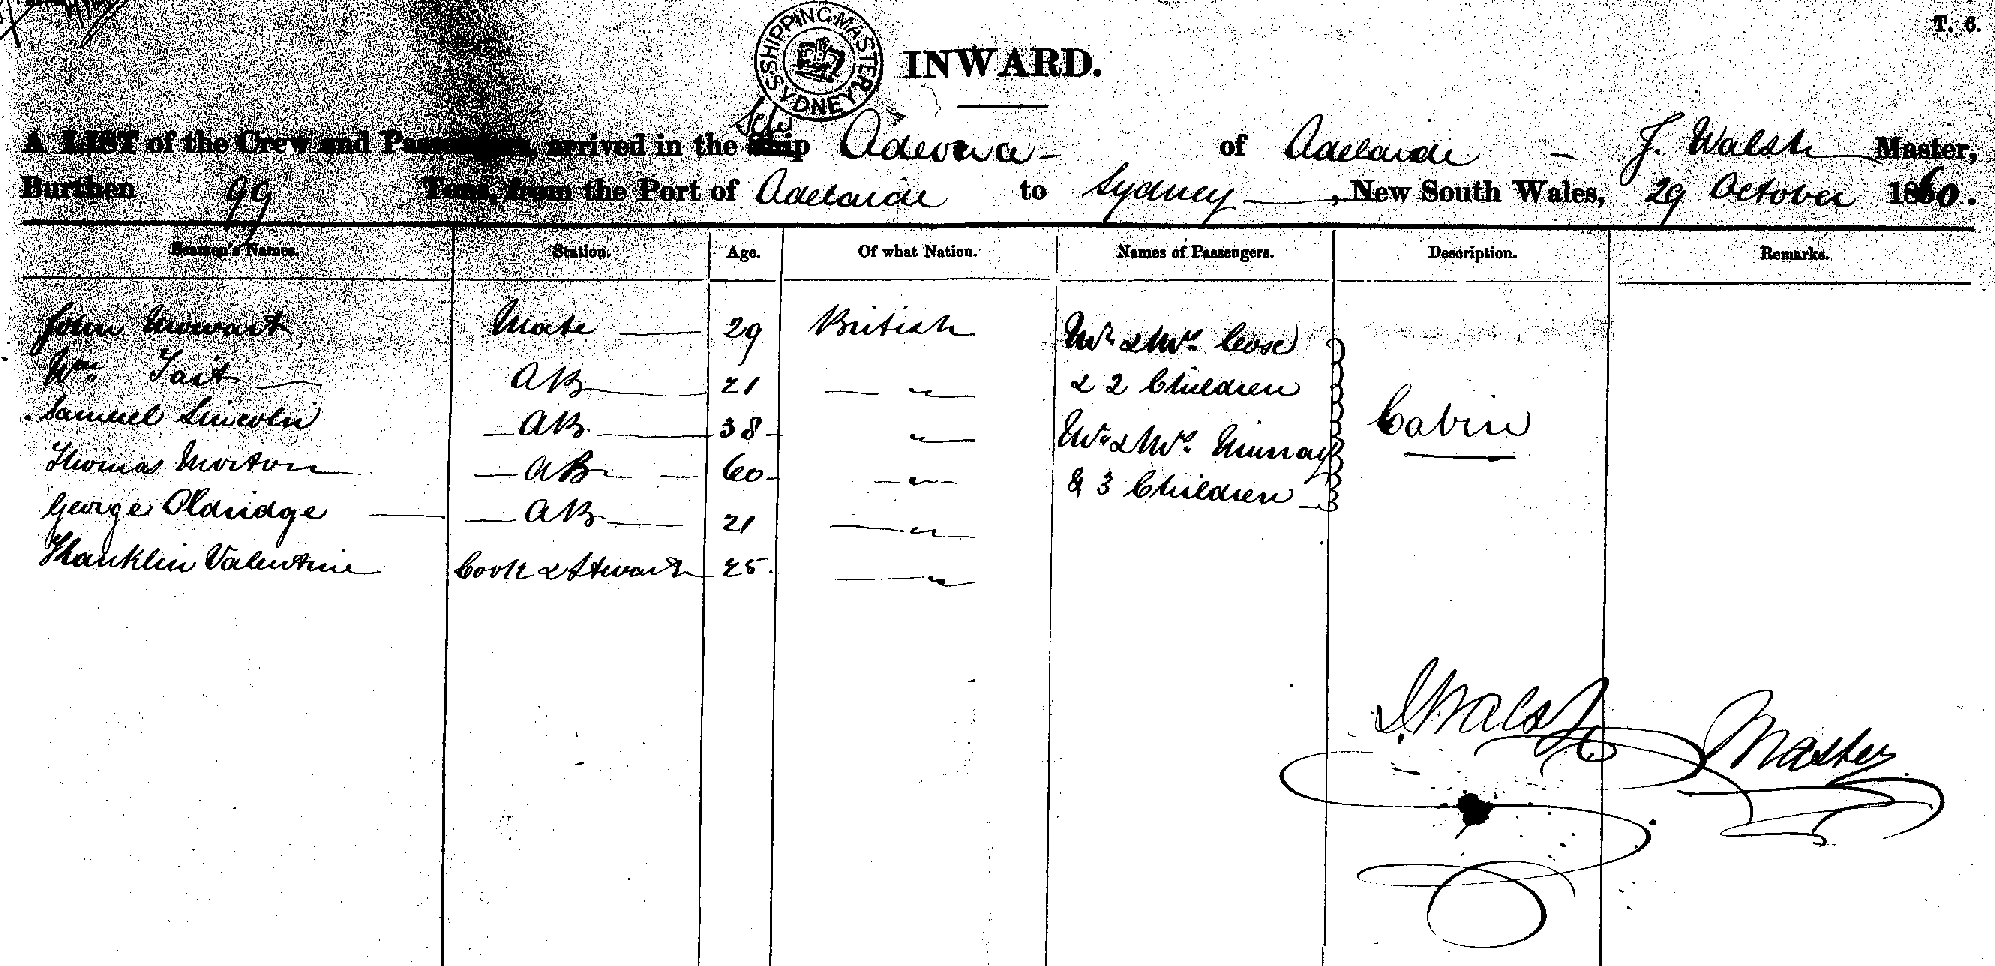 T. 6.
SHIPPING MASTER SYDNEY
INWARD.
A LIST of the Crew and Passengers, arrived in the Ship Adeona of Adelaide J. Walsh Master,
Burthen 99 Tons, from the Port of Adelaide to Sydney, New South Wales, 29 October 1860.
Seamen's Names. Station. Age. Of what Nation. Names of Passengers. Description. Remarks.
John Mate 29 British Mr & Mrs
Wm Tait AB 21 " & 2 Children
Samuel Lincoln AB 38 " Mr & Mrs Murray Cabin
Thomas Morton AB 60 " & 3 Children
George Oldridge AB 21 "
Valentine Cook & Steward 25 "
J Walsh Master